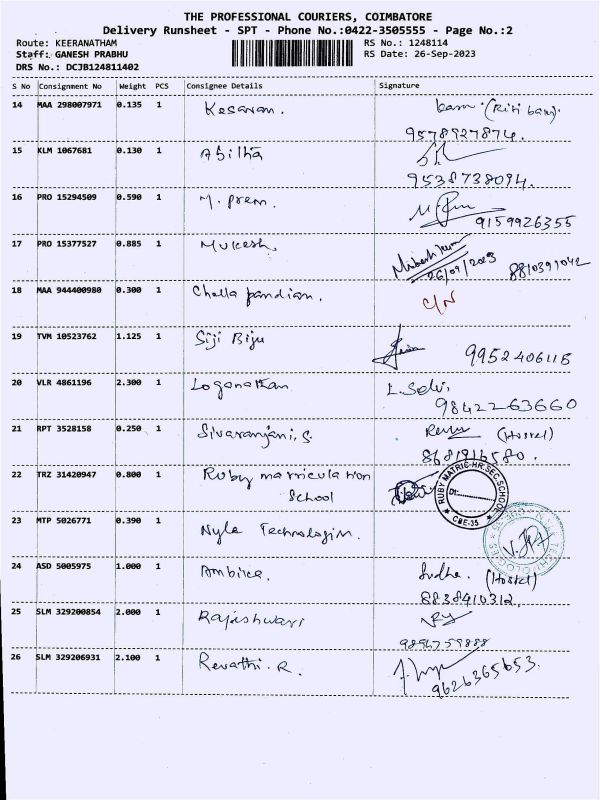 THE PROFESSIONAL COURIERS, COIMBATORE
Delivery Runsheet - SPT - Phone No.:0422-3505555 - Page No.:2
Route: KEERANATHAM RS No.: 1248114
Staff: GANESH PRABHU RS Date: 26-Sep-2023
DRS No.: DCJB124811402
S No Consignment No Weight PCS Consignee Details Signature
14 MAA 298007971 0.135 1 Kesavan.
9578927874.
15 KLM 1067681 0.130 1 Abiltha
9538738094.
16 PRO 15294509 0.590 1 M. prem.
9159926355
17 PRO 15377527 0.885 1 Mukesh.
26/09/2023 8810391042
18 MAA 944400980 0.300 1 Chella pandian. C/N
19 TVM 10523762 1.125 1 Siji Biju
9952406118
20 VLR 4861196 2.300 1 Loganathan L. Selvi,
9842263660
21 RPT 3528158 0.250 1 Sivaranjani, S. (Hostel)
8681916580.
22 TRZ 31420947 0.800 1 Ruby matriculation
School
RUBY MATRIC-HR.SEC.SCHOOL
Dt:
CBE-35
23 MTP 5026771 0.390 1 Nyla Technologies.
24 ASD 5005975 1.000 1 Ambika. Sudha. (Hostel)
8838410312.
25 SLM 329200854 2.000 1 Rajeshwari
9894759888
26 SLM 329206931 2.100 1 Revathi. R.
9626365653.